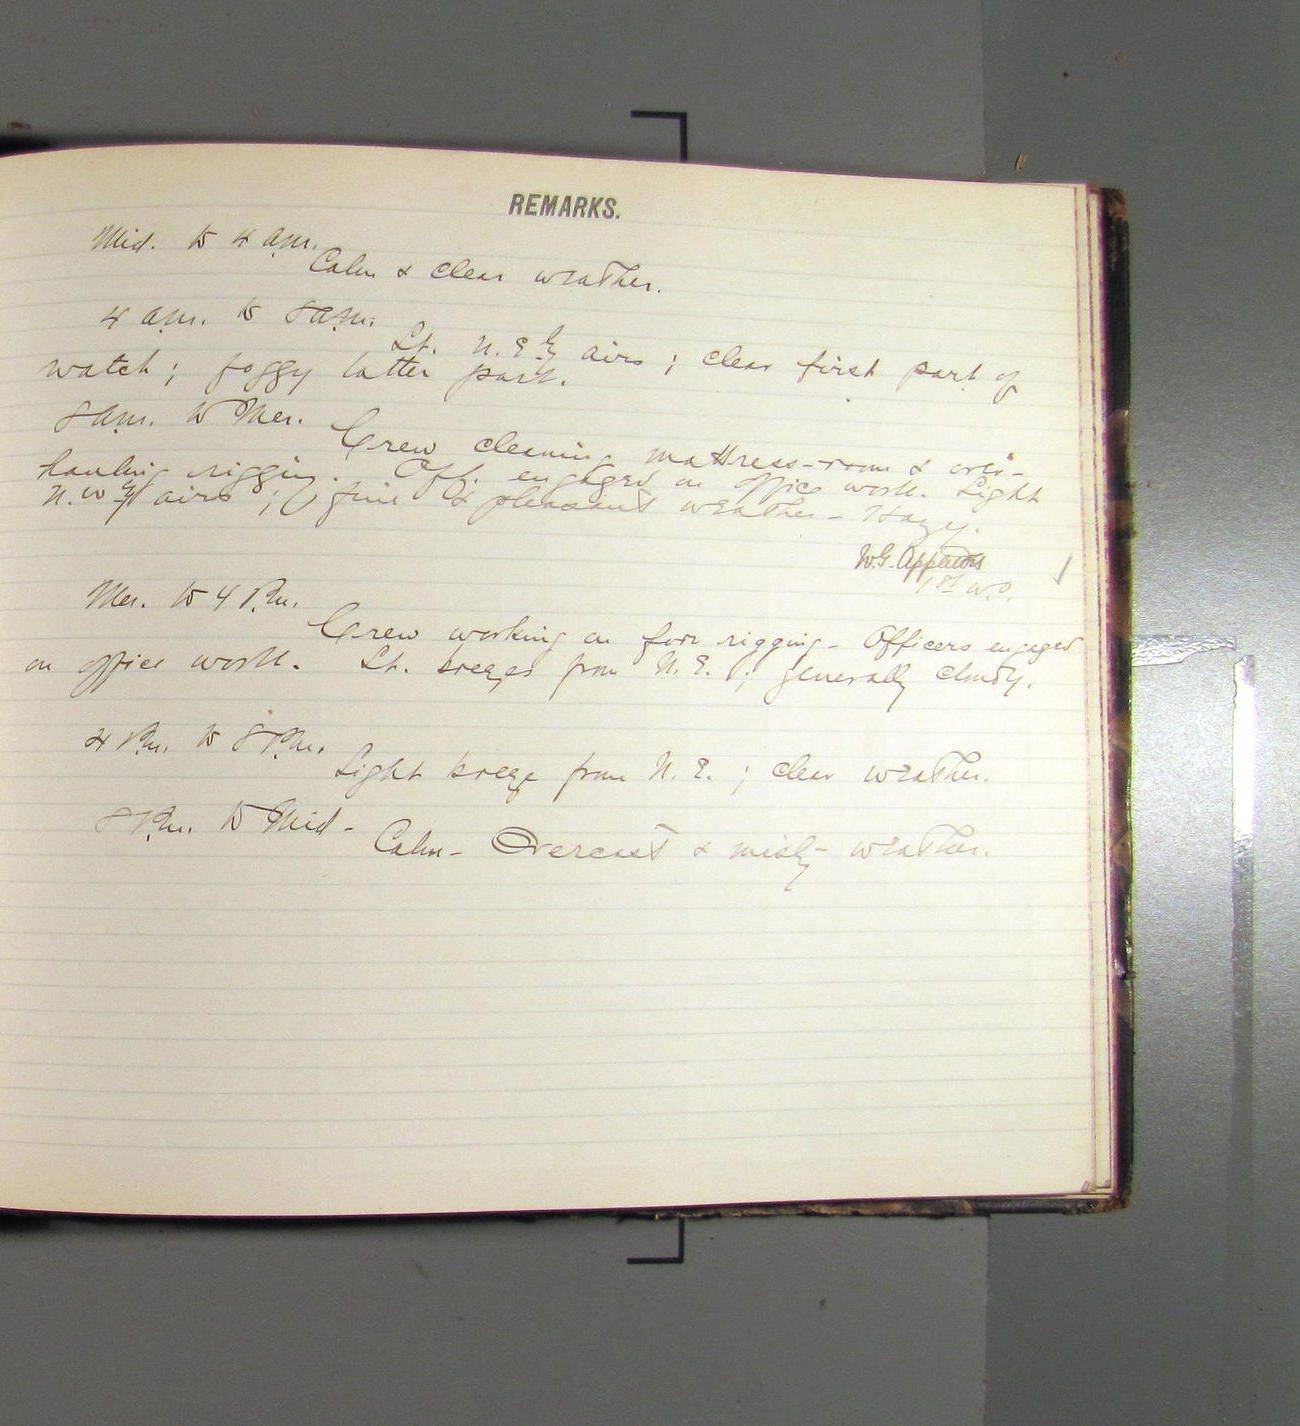 REMARKS.
Mid. to 4 a.m.
Calm & clear weather.
4 a.m. to 8 a.m.
Lt. N.E'ly airs; clear first part of
watch; foggy latter part.
8 a.m. to Mer.
Crew cleaning mattress-room & over-
hauling rigging. Off. engaged on office work. Light
N.W'ly airs; fine & pleasant weather - Hazy.
W.G. Appleton
1st W.O.
Mer. to 4 P.m.
Crew working on fore rigging - Officers engaged
on office work. Lt. breezes from N.E.; generally cloudy.
4 P.m. to 8 P.m.
Light breeze from N.E.; clear weather.
8 P.m. to Mid -
Calm - Overcast & misty weather.